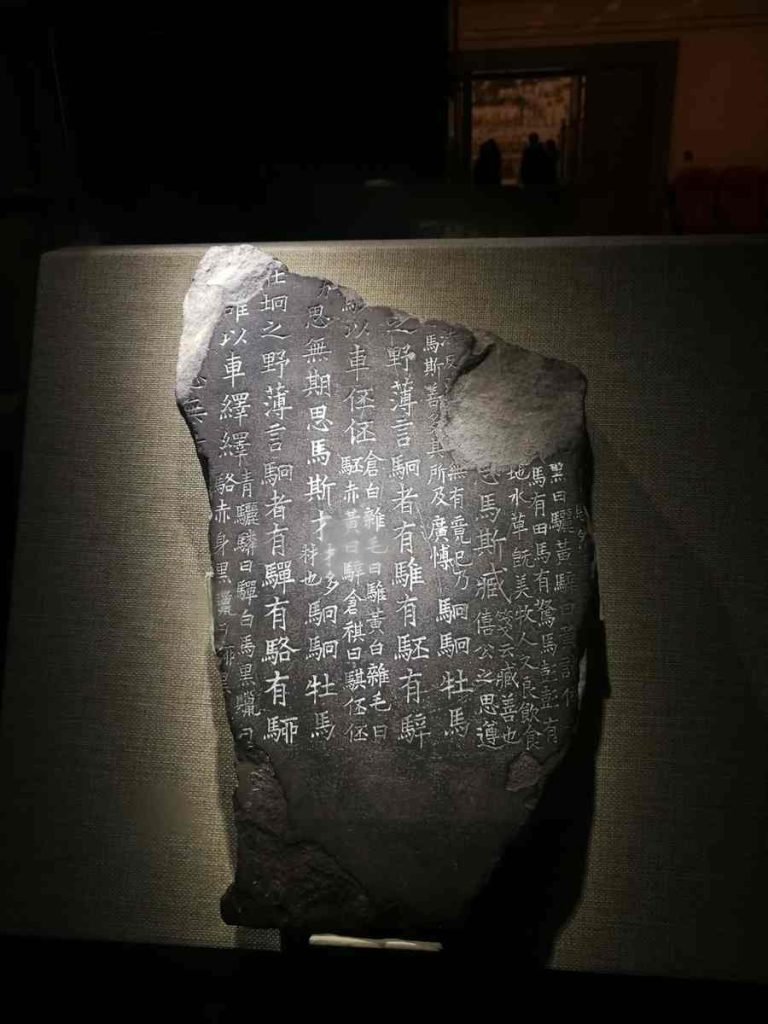 黑曰驪黃騂曰黃諸侯
馬有田馬有駑馬彭彭有
地水草既美牧人又良飲食
思馬斯臧 箋云臧善也
僖公之思遵
無有竟已乃
馬斯善多其所及廣博 駉駉牡馬
之野薄言駉者有騅有駓有騂
以車伾伾 倉白雜毛曰騅黃白雜毛曰
駓赤黃曰騂倉祺曰騏伾伾
思無期思馬斯才 才多
材也 駉駉牡馬
在坰之野薄言駉者有驒有駱有駵
以車繹繹 青驪驎曰驒白馬黑鬣曰
駱赤身黑鬣曰駵黑
思無